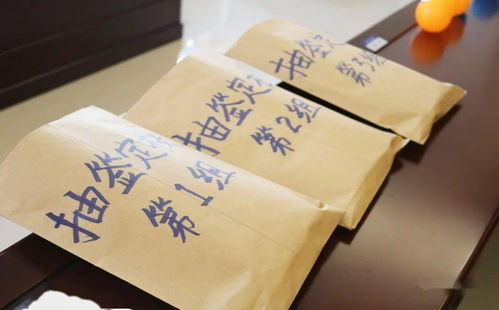 抽签定
第1组
抽签定
第2组
抽签定
第3组